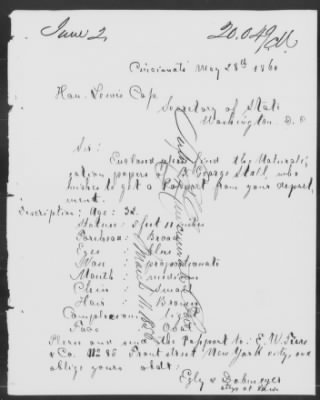 June 2
20.049
Cincinnati May 28th 1860
Hon. Lewis Cass
Secretary of State
Washington D. C
Sir:
Enclosed please find the Naturali-
zation papers of B. George Stall, who
wishes to get a Passport from your depart
ment.
Description: Age: 32.
Stature: 5 feet 11 inches
Forehead: Broad
Eyes: blue
Nose: proportionate
Mouth: medium
Chin: small
Hair: Brown
Complexion: light
Face: Oval
Please and send the Passport to: E. W.
& Co. No 85 Front street New York city, and
oblige yours obdt.